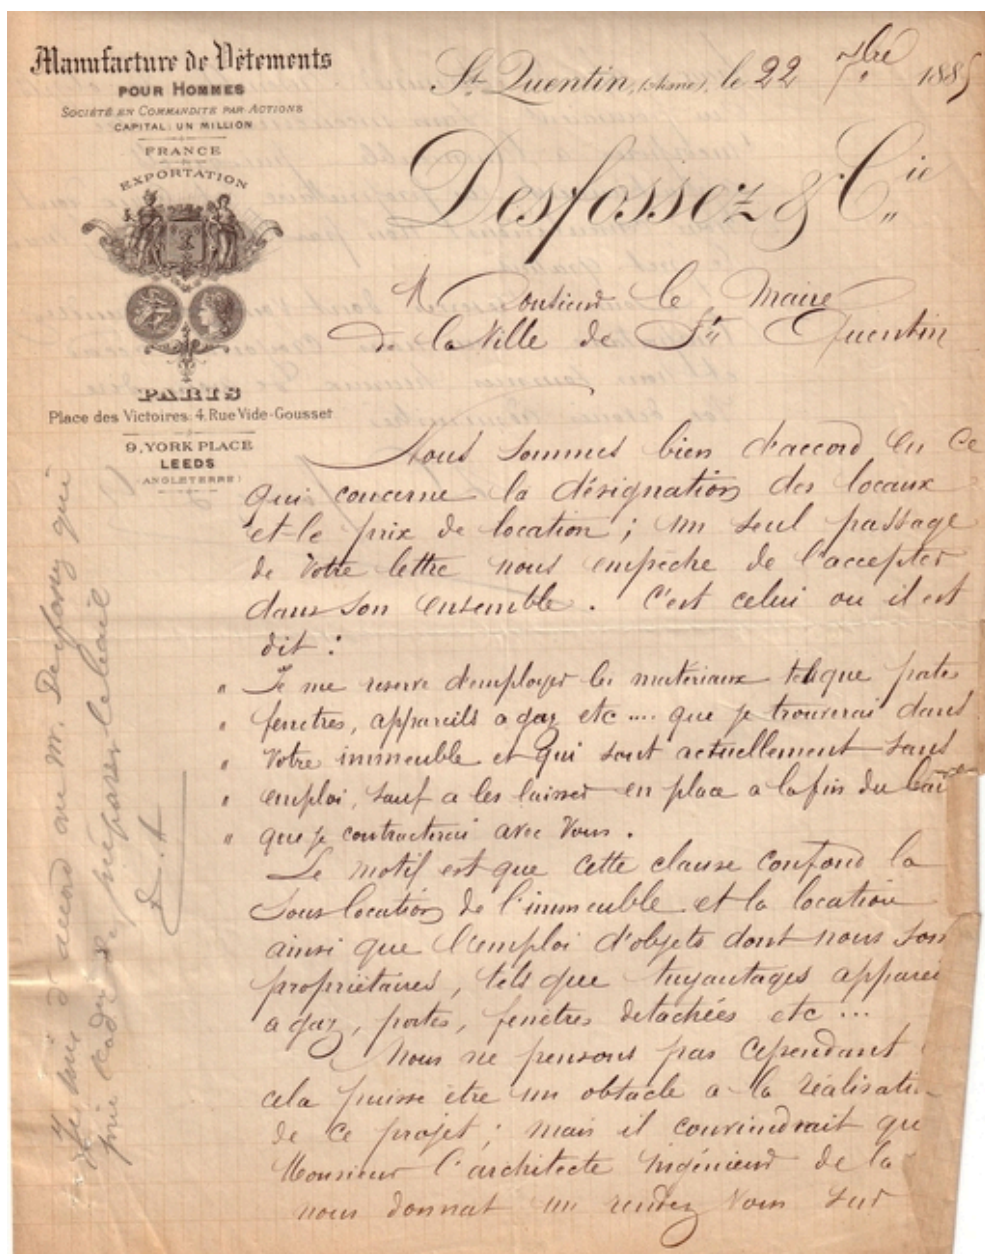 Manufacture de Vêtements
POUR HOMMES
SOCIÉTÉ EN COMMANDITE PAR ACTIONS
CAPITAL: UN MILLION
FRANCE
EXPORTATION
PARIS
Place des Victoires. 4. Rue Vide-Gousset
9, YORK PLACE
LEEDS
(ANGLETERRE)
St Quentin, (Aisne), le 22 7bre 1885
Desfossez & Cie
Monsieur le Maire
de la Ville de St Quentin
Nous sommes bien d'accord en ce
qui concerne la désignation des locaux
et le prix de location ; un seul passage
de votre lettre nous empêche de l'accepter
dans son ensemble. C'est celui ou il est
dit :
" Je me reserve d'employer les materiaux tels que portes
" fenetres, appareils a gaz etc .... que je trouverai dans
" votre immeuble et qui sont actuellement sans
" emploi, sauf a les laisser en place a la fin du bail
" que je contracterai avec vous.
Le motif est que cette clause confond la
sous location de l'immeuble et la location
ainsi que l'emploi d'objets dont nous som
propriétaires, tels que tuyautages apparei
a gaz, portes, fenêtres détachées etc ...
Nous ne pensons pas cependant
cela puisse etre un obstacle a la réalisati
de ce projet ; mais il conviendrait que
Monsieur l'architecte ingénieur de la
nous donnat un rendez vous sur
Je suis d'accord avec M. Desfossez qui
prie de préparer le bail